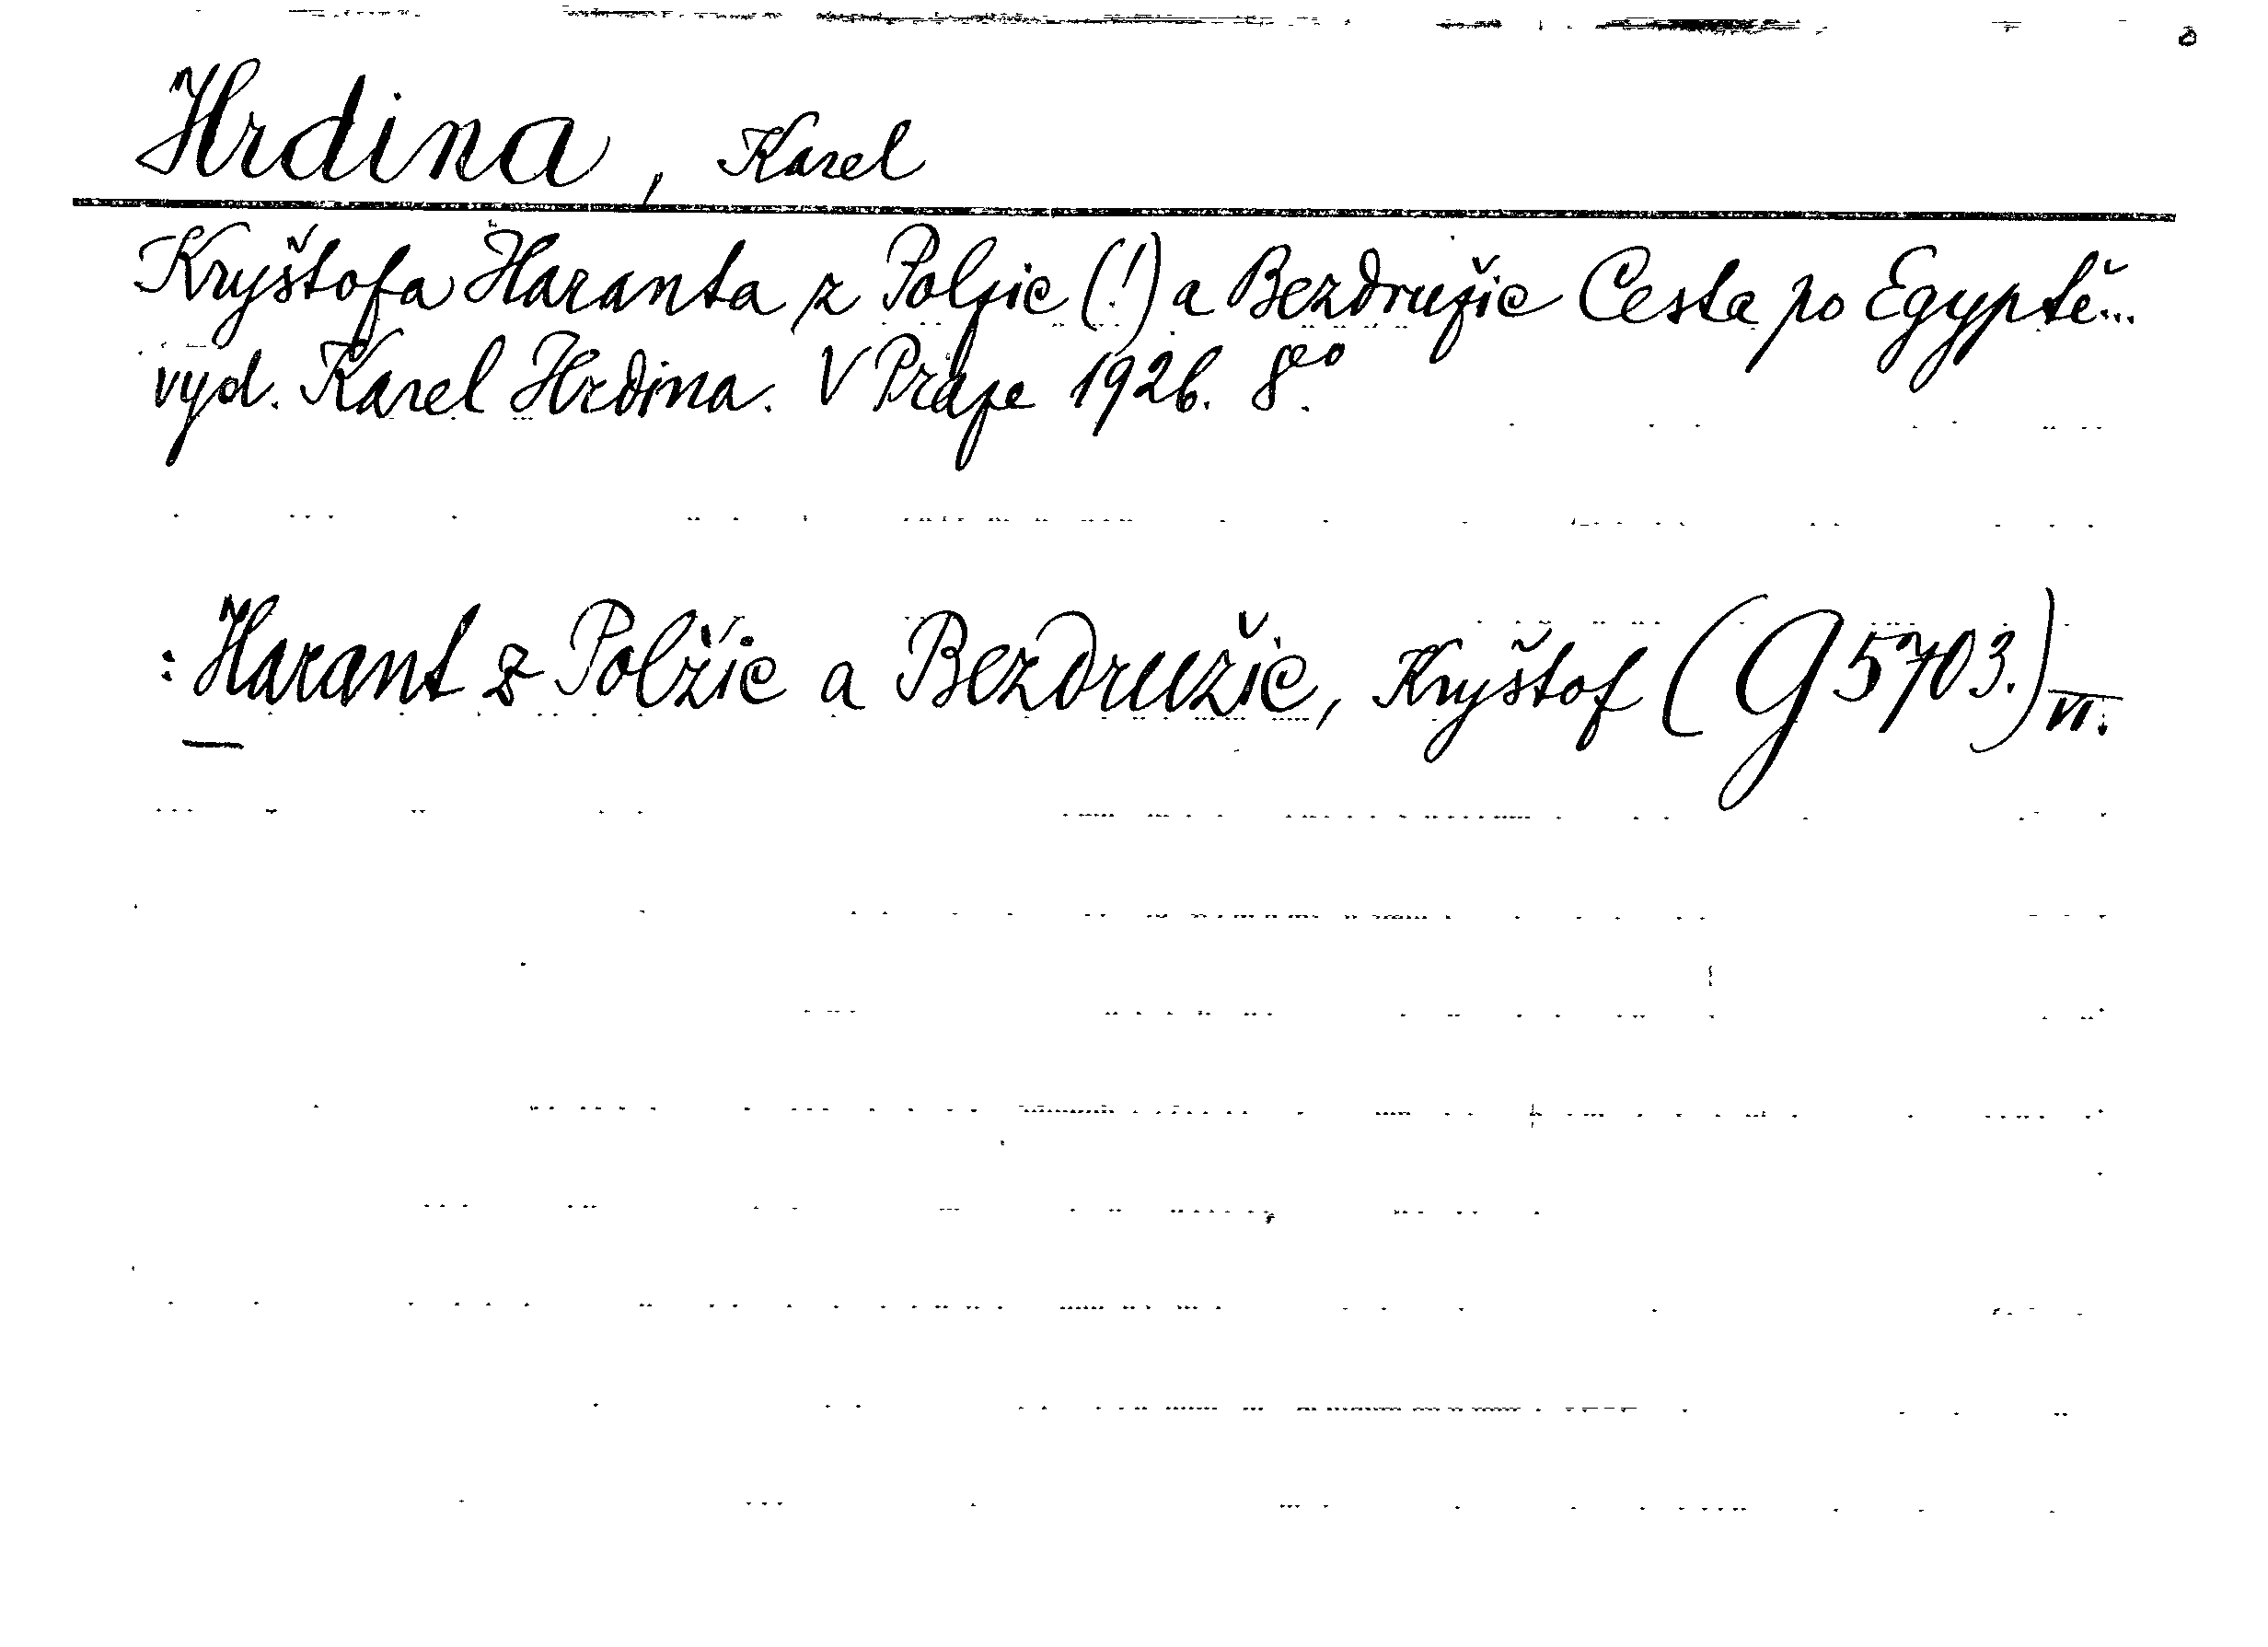 Hrdina, Karel
Kryštofa Haranta z Polzic (!) a Bezdružic Cesta po Egyptě...
vyd. Karel Hrdina. V Praze 1926. 8°.
: Harant z Polžic a Bezdružic, Kryštof (G 5703.) VI.